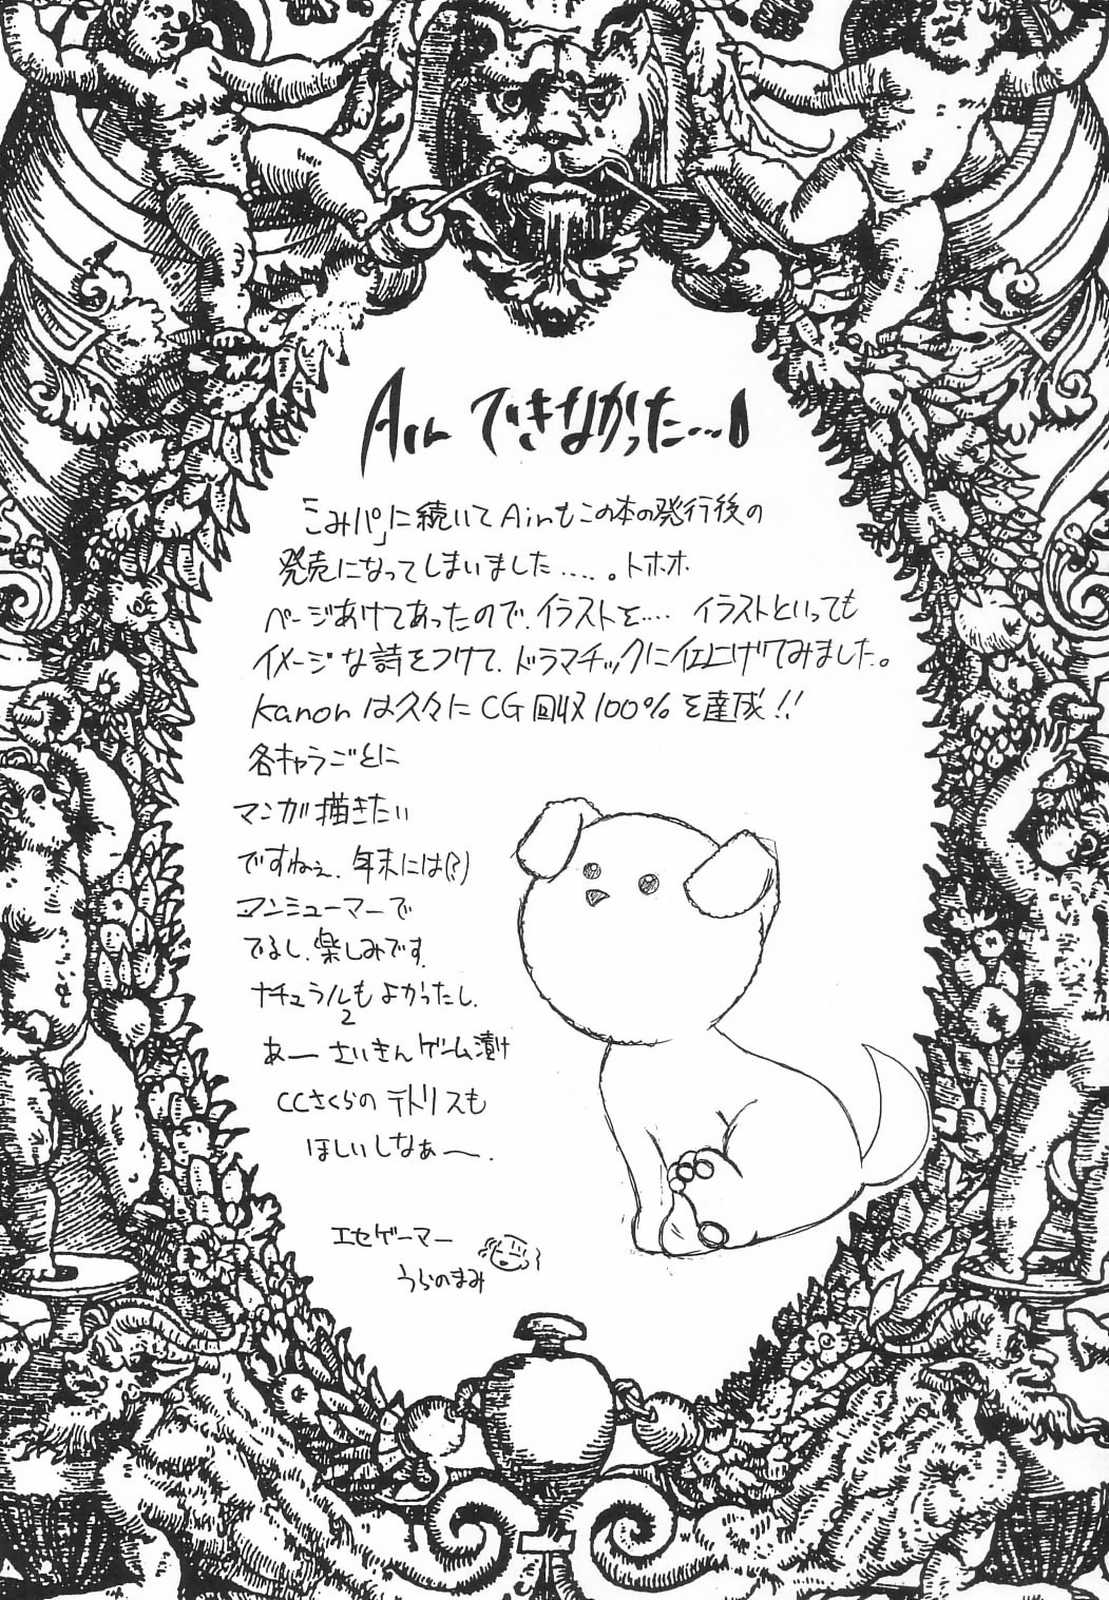 Air できなかった…
「こみパ」に続いてAirもこの本の発行後の
発売になってしまいました…。トホホ
ページあけてあったので、イラストを… イラストといっても
イメージな詩をつけて、ドラマチックに仕上げてみました。
Kanonは久々にCG回収100%を達成!!
各キャラごとに
マンガ描きたい
ですねぇ。年末には(?)
マンミューマーで
でるし、楽しみです。
ナチュラル2もよかったし、
あー さいきんゲーム漬け
CCさくらのテトリスも
ほしいしなぁー。
エセゲーマー
うらのまみ